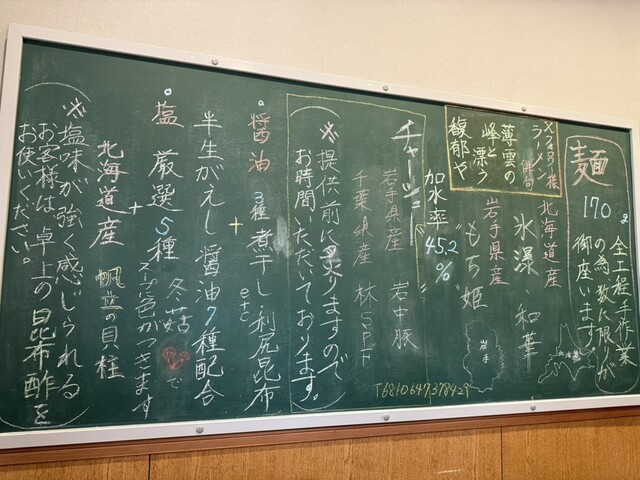 麺
170g
全工程手作業
の為数に限りが
御座います。
北海道産
氷瀑・和華
北海道
岩手県産
"もち姫"
岩手
加水率
"45.2%"
Xフォロワー様
ラーメン俳句
薄雲の
峰と漂う
馥郁や
チャーシュー
岩手県産 岩中豚
千葉県産 林SPF
(※提供前に炙りますので
お時間いただいております。)
T6810647378429
醤油
3種煮干し・利尻昆布
etc
+
半生がえし醤油7種配合
塩
厳選5種
冬菇で
スープ色がつきます
+
北海道産 帆立の貝柱
(※塩味が強く感じられる
お客様は卓上の昆布酢を
お使いください。)